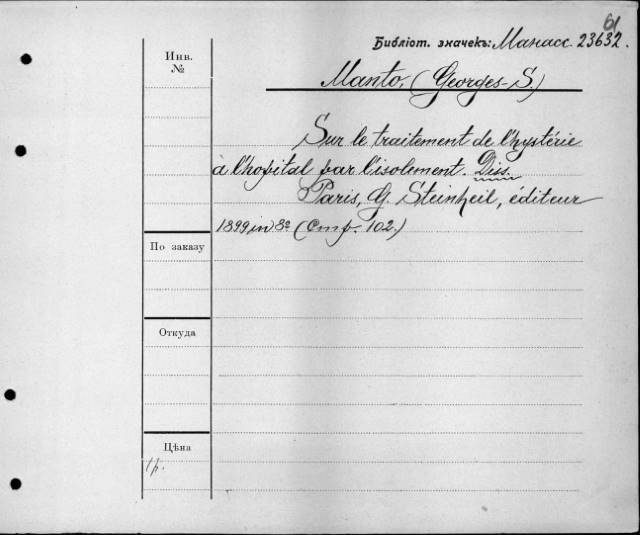 61
Библіот. значекъ: Манасс. 23632.
Инв. №
Manto, (Georges-S.)
Sur le traitement de l'hystérie
à l'hopital par l'isolement. Diss.
Paris, G. Steinheil, éditeur
1899 in 8º (Стр. 102.)
По заказу
Откуда
Цѣна
1р.